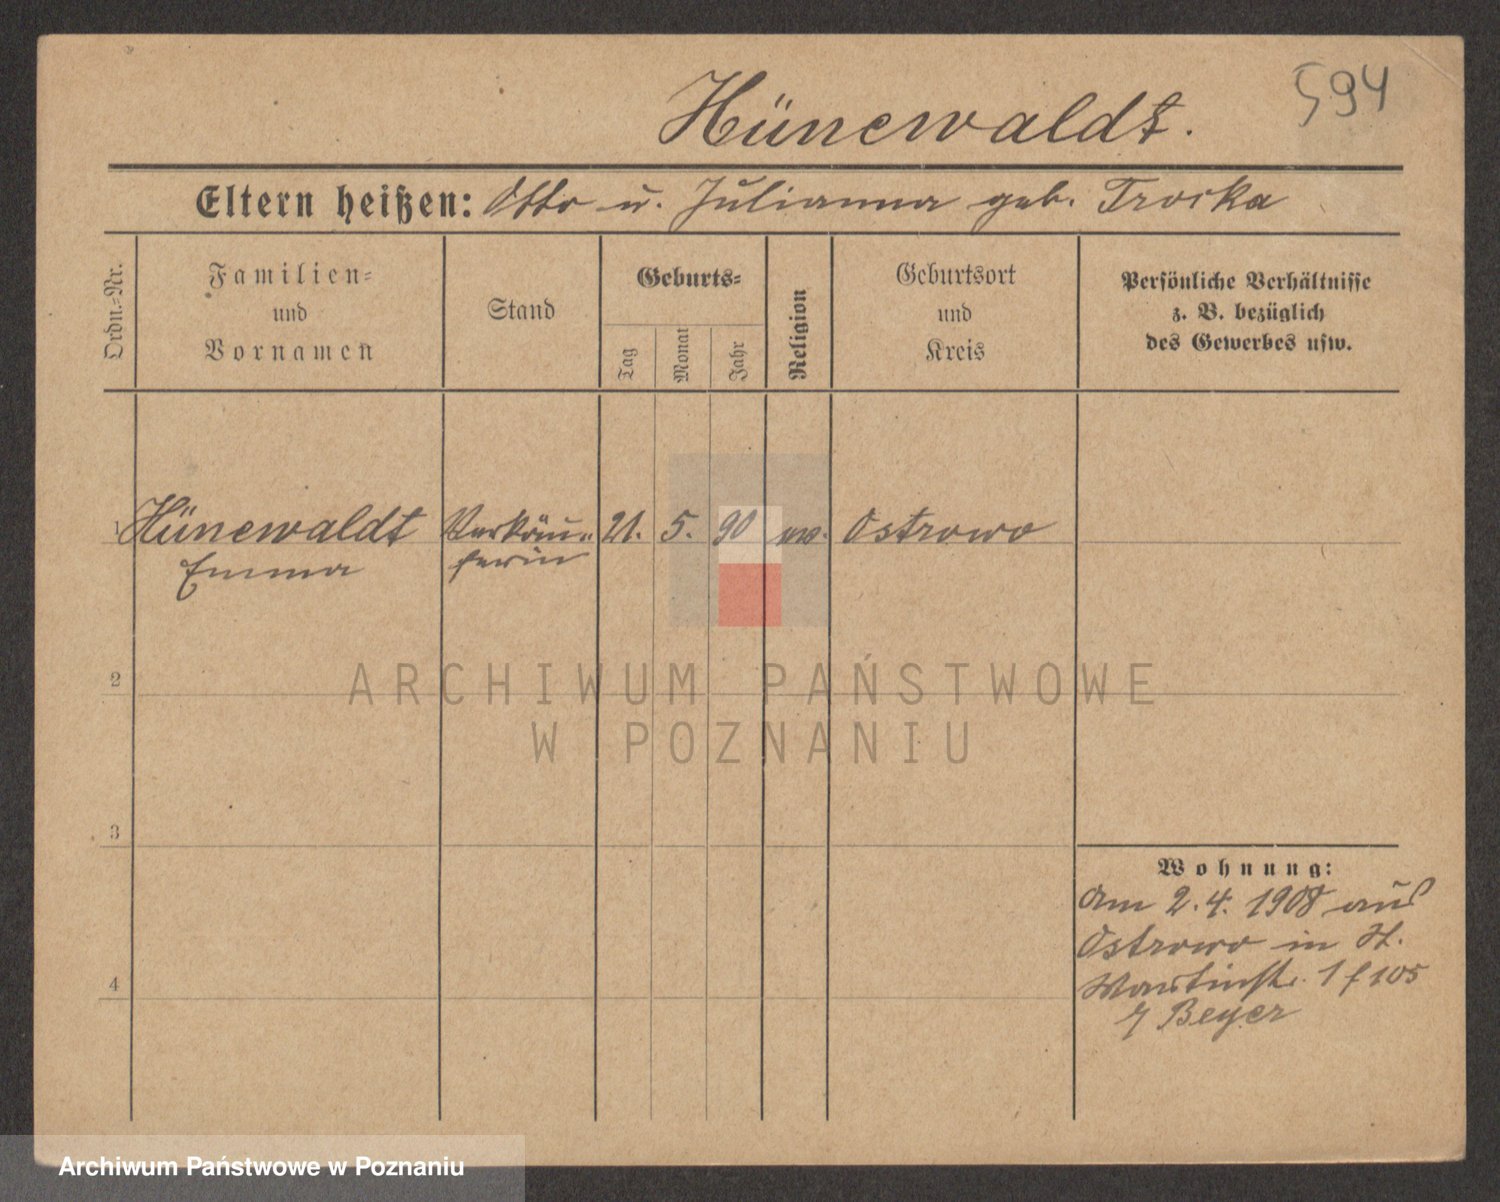 594
Hünewaldt.
Eltern heißen: Otto u. Julianna geb. Trocka
Ordn.=Nr.
Familien=
und
Vornamen
Stand
Geburts=
Tag
Monat
Jahr
Religion
Geburtsort
und
Kreis
Persönliche Verhältnisse
z. B. bezüglich
des Gewerbes usw.
1 Hünewaldt Verkäu= 21. 5. 90 ev. Ostrowo
Emma ferin
2
ARCHIWUM PAŃSTWOWE
W POZNANIU
3
Wohnung:
Am 2.4. 1908 aus
Ostrowo in St.
Martinstr. 1 f 105
Beyer
4
Archiwum Państwowe w Poznaniu